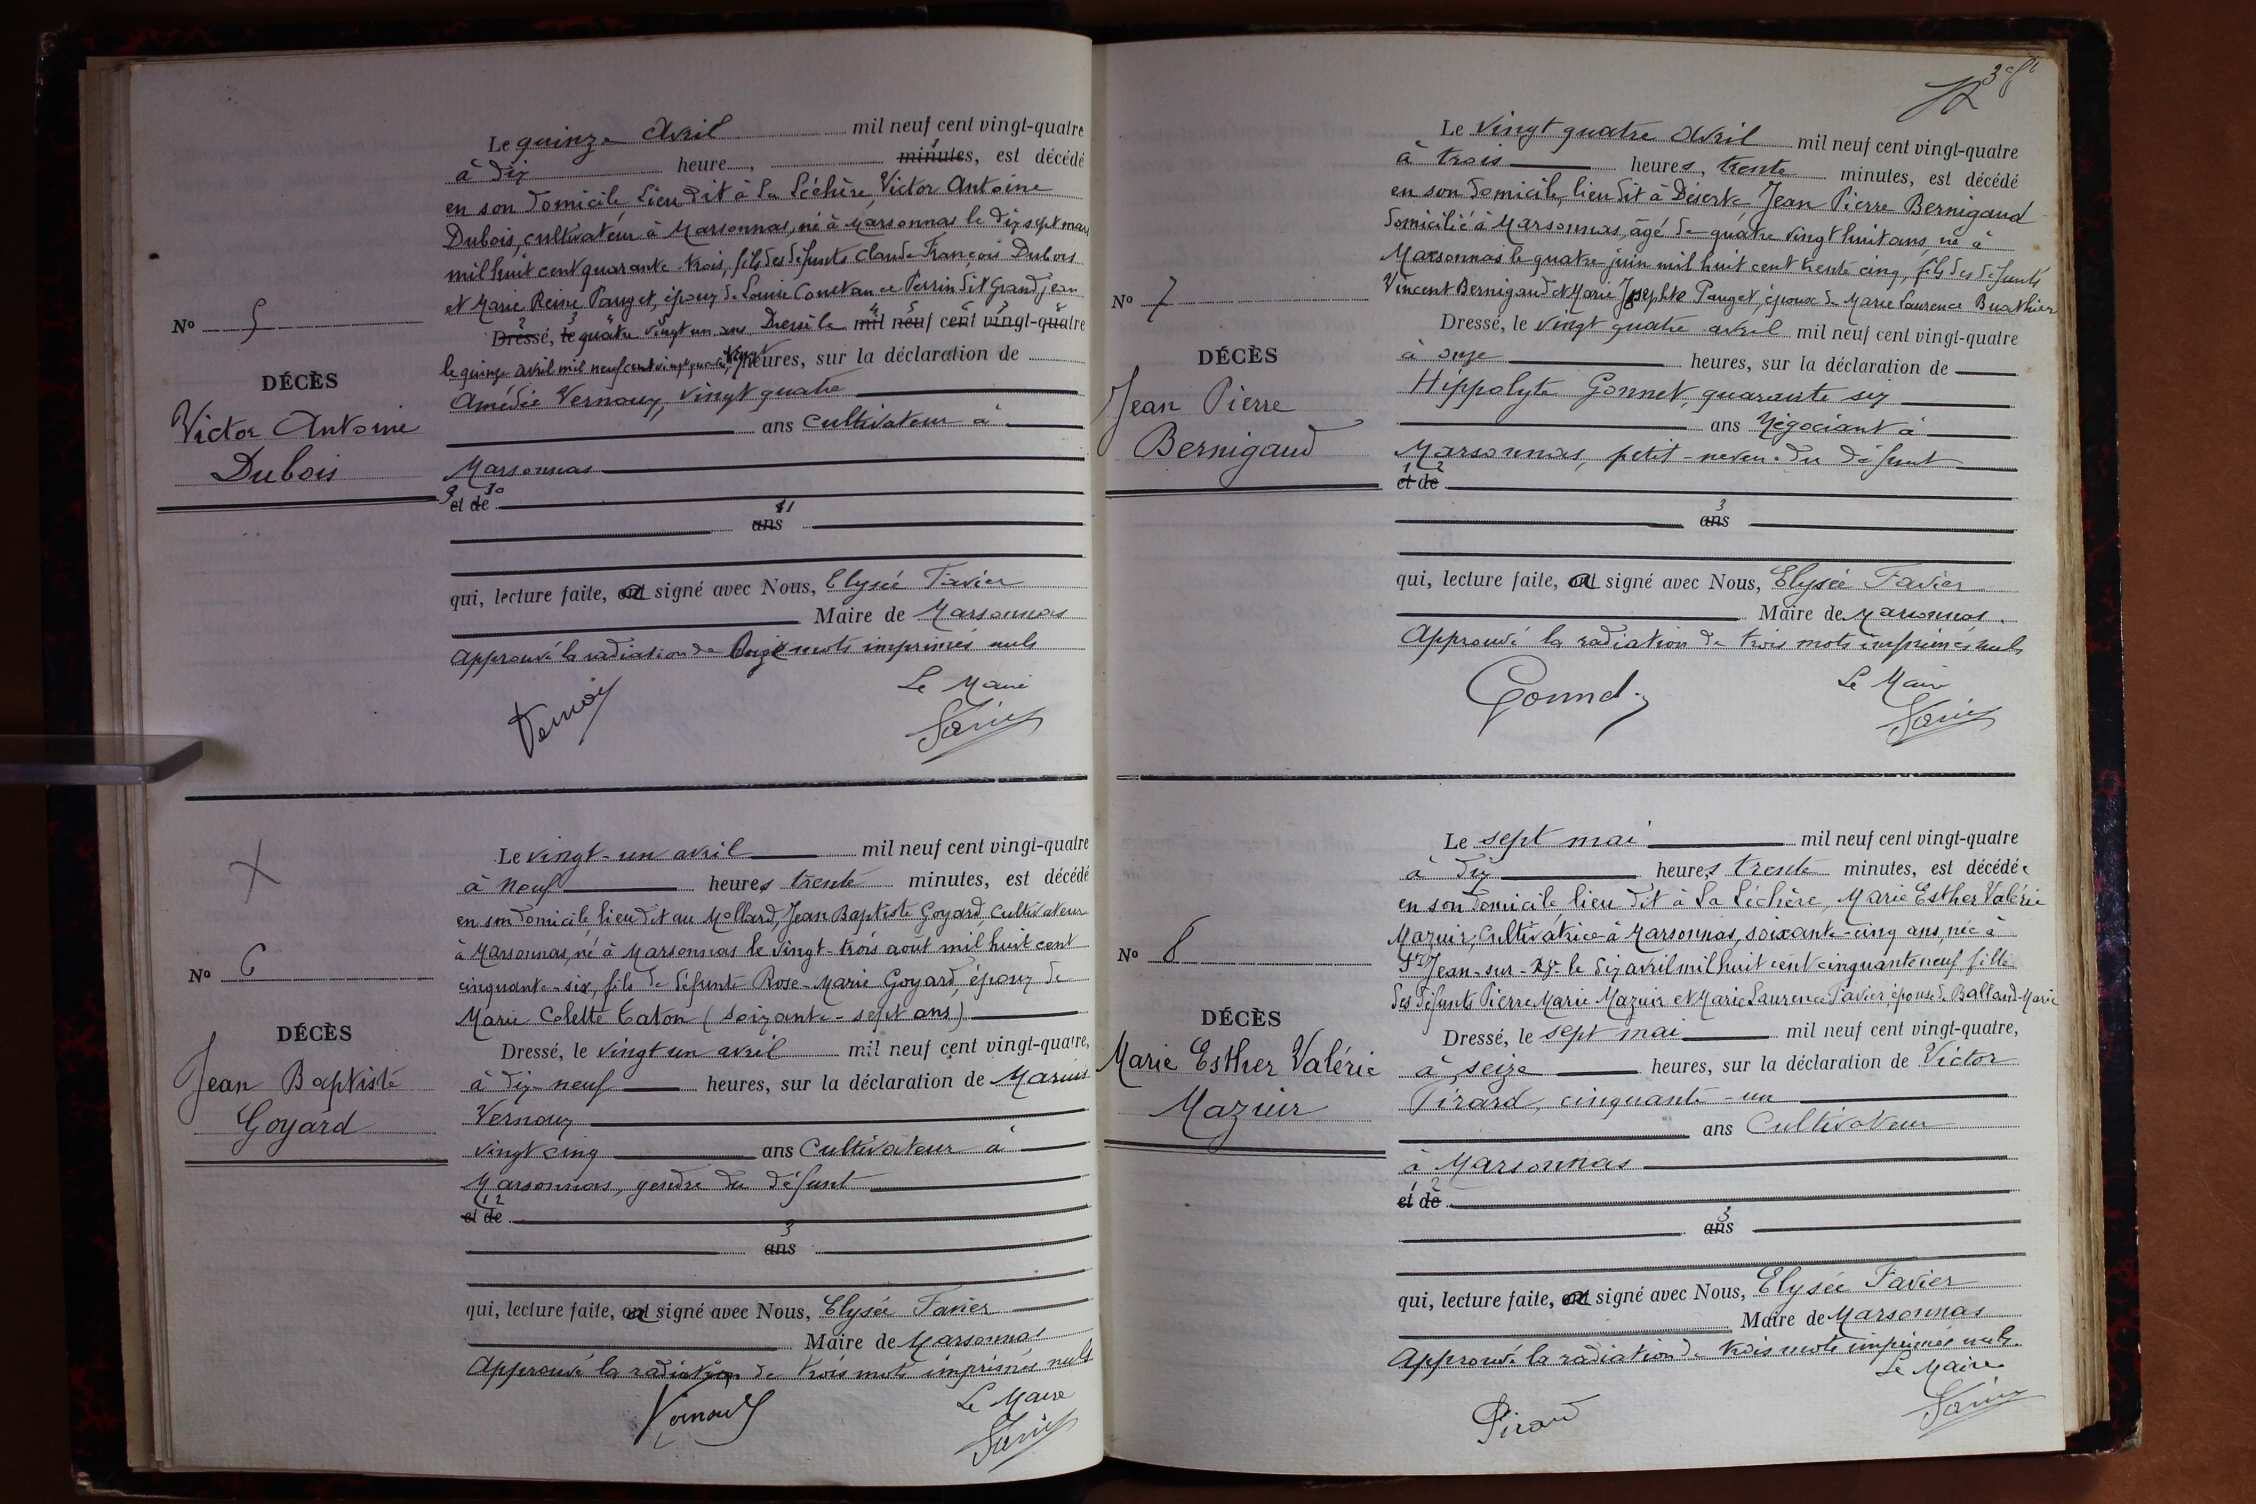 Le quinze avril mil neuf cent vingt-quatre
à dix heure , minutes, est décédé
en son domicile lieu dit à La Léchère, Victor Antoine
Dubois, cultivateur à Marsonnas, né à Marsonnas le dix sept mars
mil huit cent quarante-trois, fils des défunts Claude François Dubois
et Marie Reine Pauget, époux de Louise Constance Perrin dit Grandjean
Dressé, le quatre vingt un ans Dressé le mil neuf cent vingt-quatre
le quinze avril mil neuf cent vingt quatre, heures, sur la déclaration de
Amédée Vernoux, vingt quatre
ans cultivateur à
Marsonnas
9 10
et de
11
ans
qui, lecture faite, a signé avec Nous, Elysée Favier
Maire de Marsonnas
Approuvé la radiation de onze mots imprimés nuls
Le Maire
Favier
No 5
DÉCÈS
Victor Antoine
Dubois
Le vingt-un avril mil neuf cent vingt-quatre
à neuf heures trente minutes, est décédé
en son domicile lieu dit au Mollard, Jean Baptiste Goyard, cultivateur
à Marsonnas, né à Marsonnas le vingt-trois août mil huit cent
cinquante-six, fils de défunte Rose-Marie Goyard, époux de
Marie Colette Caton (soixante-sept ans)
Dressé, le vingt un avril mil neuf cent vingt-quatre,
à dix-neuf heures, sur la déclaration de Marius
Vernoux
vingt cinq ans cultivateur à
Marsonnas, gendre du défunt
1 2
et de
3
ans
qui, lecture faite, a signé avec Nous, Elysée Favier
Maire de Marsonnas
Approuvé la radiation de trois mots imprimés nuls
Le Maire
Vernoux
Favier
No 6
DÉCÈS
Jean Baptiste
Goyard
Le vingt quatre avril mil neuf cent vingt-quatre
à trois heures, trente minutes, est décédé
en son domicile, lieu dit à Déserte Jean Pierre Bernigaud
domicilié à Marsonnas, âgé de quatre vingt huit ans né à
Marsonnas le quatre juin mil huit cent trente cinq, fils des défunts
Vincent Bernigaud et Marie Josephte Pauget, époux de Marie Laurence Buathier
Dressé, le vingt quatre avril mil neuf cent vingt-quatre
à onze heures, sur la déclaration de
Hippolyte Gonnet, quarante six
ans Négociant à
Marsonnas, petit-neveu du défunt
1 2
et de
3
ans
qui, lecture faite, a signé avec Nous, Elysée Favier
Maire de Marsonnas.
Approuvé la radiation de trois mots imprimés nuls
Le Maire
Gonnet
Favier
No 7
DÉCÈS
Jean Pierre
Bernigaud
Le sept mai mil neuf cent vingt-quatre
à dix heures trente minutes, est décédée
en son domicile lieu dit à La Léchère, Marie Esther Valérie
Mazuir, cultivatrice à Marsonnas, soixante-cinq ans, née à
St Jean-sur-Rze le dix avril mil huit cent cinquante neuf fille
des défunts Pierre Marie Mazuir et Marie Laurence Pavier, épouse de Balland Marie
Dressé, le sept mai mil neuf cent vingt-quatre,
à seize heures, sur la déclaration de Victor
Pirard, cinquante-un
ans Cultivateur
à Marsonnas
1 2
et de
3
ans
qui, lecture faite, a signé avec Nous, Elysée Favier
Maire de Marsonnas
Approuvé la radiation de trois mots imprimés nuls.
Le Maire
Favier
No 8
DÉCÈS
Marie Esther Valérie
Mazuir